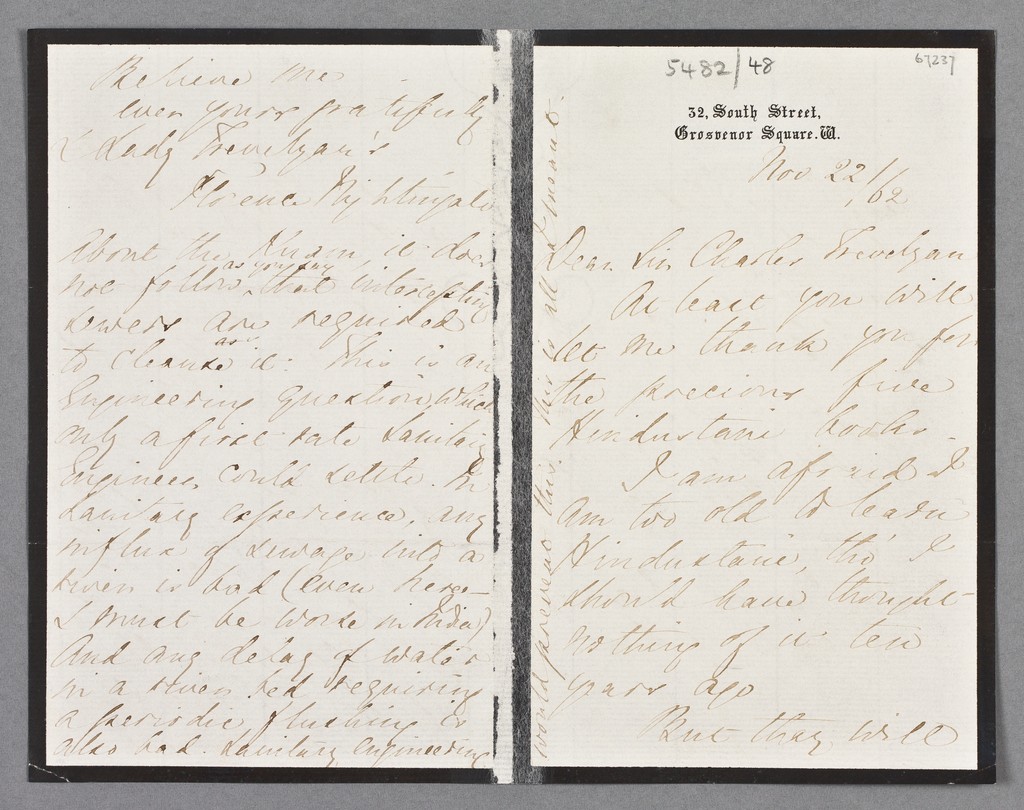 5482/48
67237
32, South Street,
Grosvenor Square. W.
Nov 22/62
Dear Sir Charles Trevelyan
At least you will
let me thank you for
the precious five
Hindustani books.
I am afraid I
am too old to learn
Hindustani, tho' I
should have thought
nothing of it ten
years ago
But they will
Believe me
ever yours gratefully
& Lady Trevelyan's
Florence Nightingale
About the , it does
not follow, as you say that intercepting
sewers are required
to cleanse it: This is an
Engineering Question, which
only a first rate Sanitary
Engineer could settle. In
Sanitary experience, any
influx of sewage into a
river is bad (even here -
& must be worse in India)
And any delay of water
in a river bed requiring
a periodic flushing is
also bad. Sanitary engineering
would prevent this. This is all